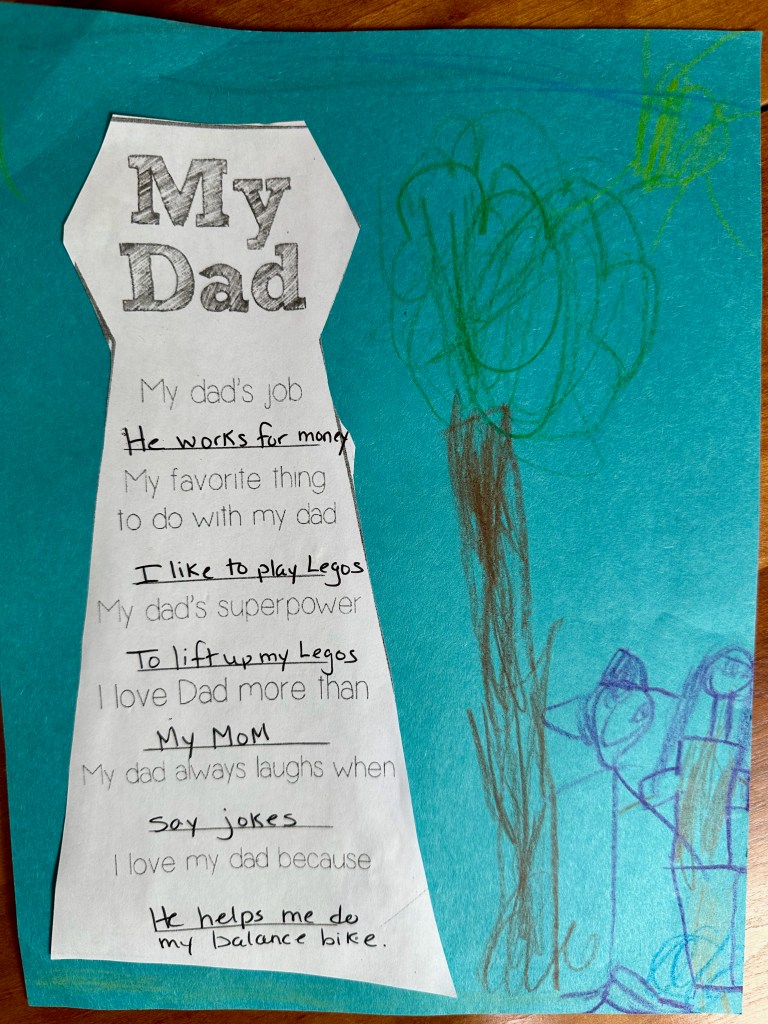 My
Dad
My dad's job
He works for money
My favorite thing
to do with my dad
I like to play Legos
My dad's superpower
To lift up my Legos
I love Dad more than
My MoM
My dad always laughs when
say jokes
I love my dad because
He helps me do
my balance bike.